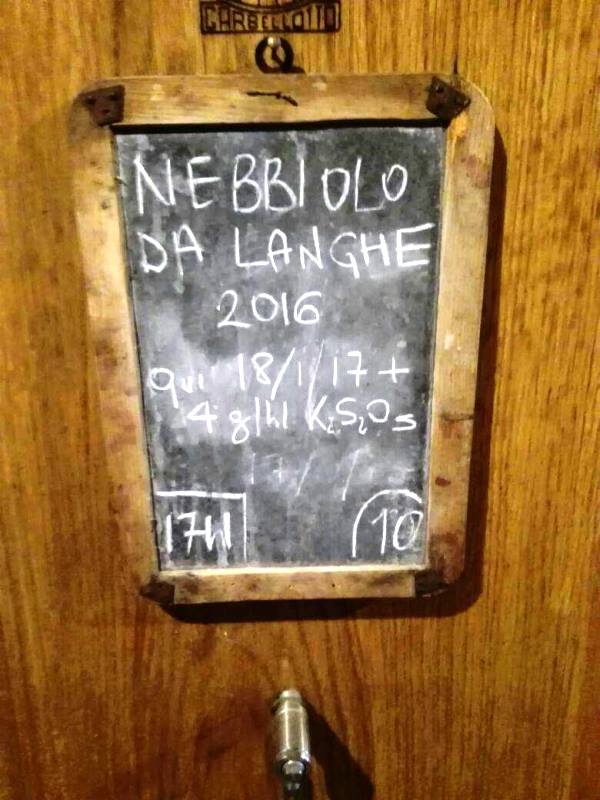 GARBELLOTTO
NEBBIOLO
DA LANGHE
2016
qui 18/1/17 +
4 g/hl K₂S₂O₅
17hl
10